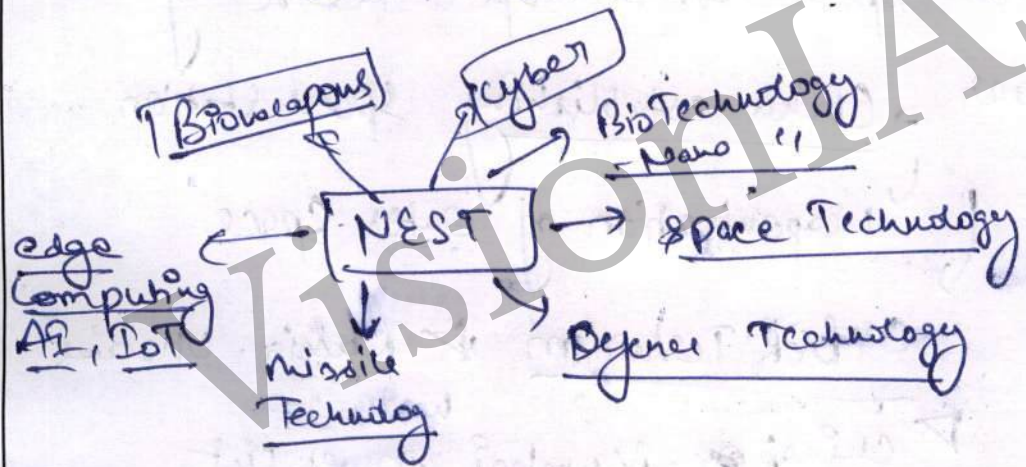 Bioweapons
cyber
BioTechnology
- Nano "
NEST
Space Technology
edge
Computing
AI, IoT
Missile
Technolog
Defence Technology
VisionIAS